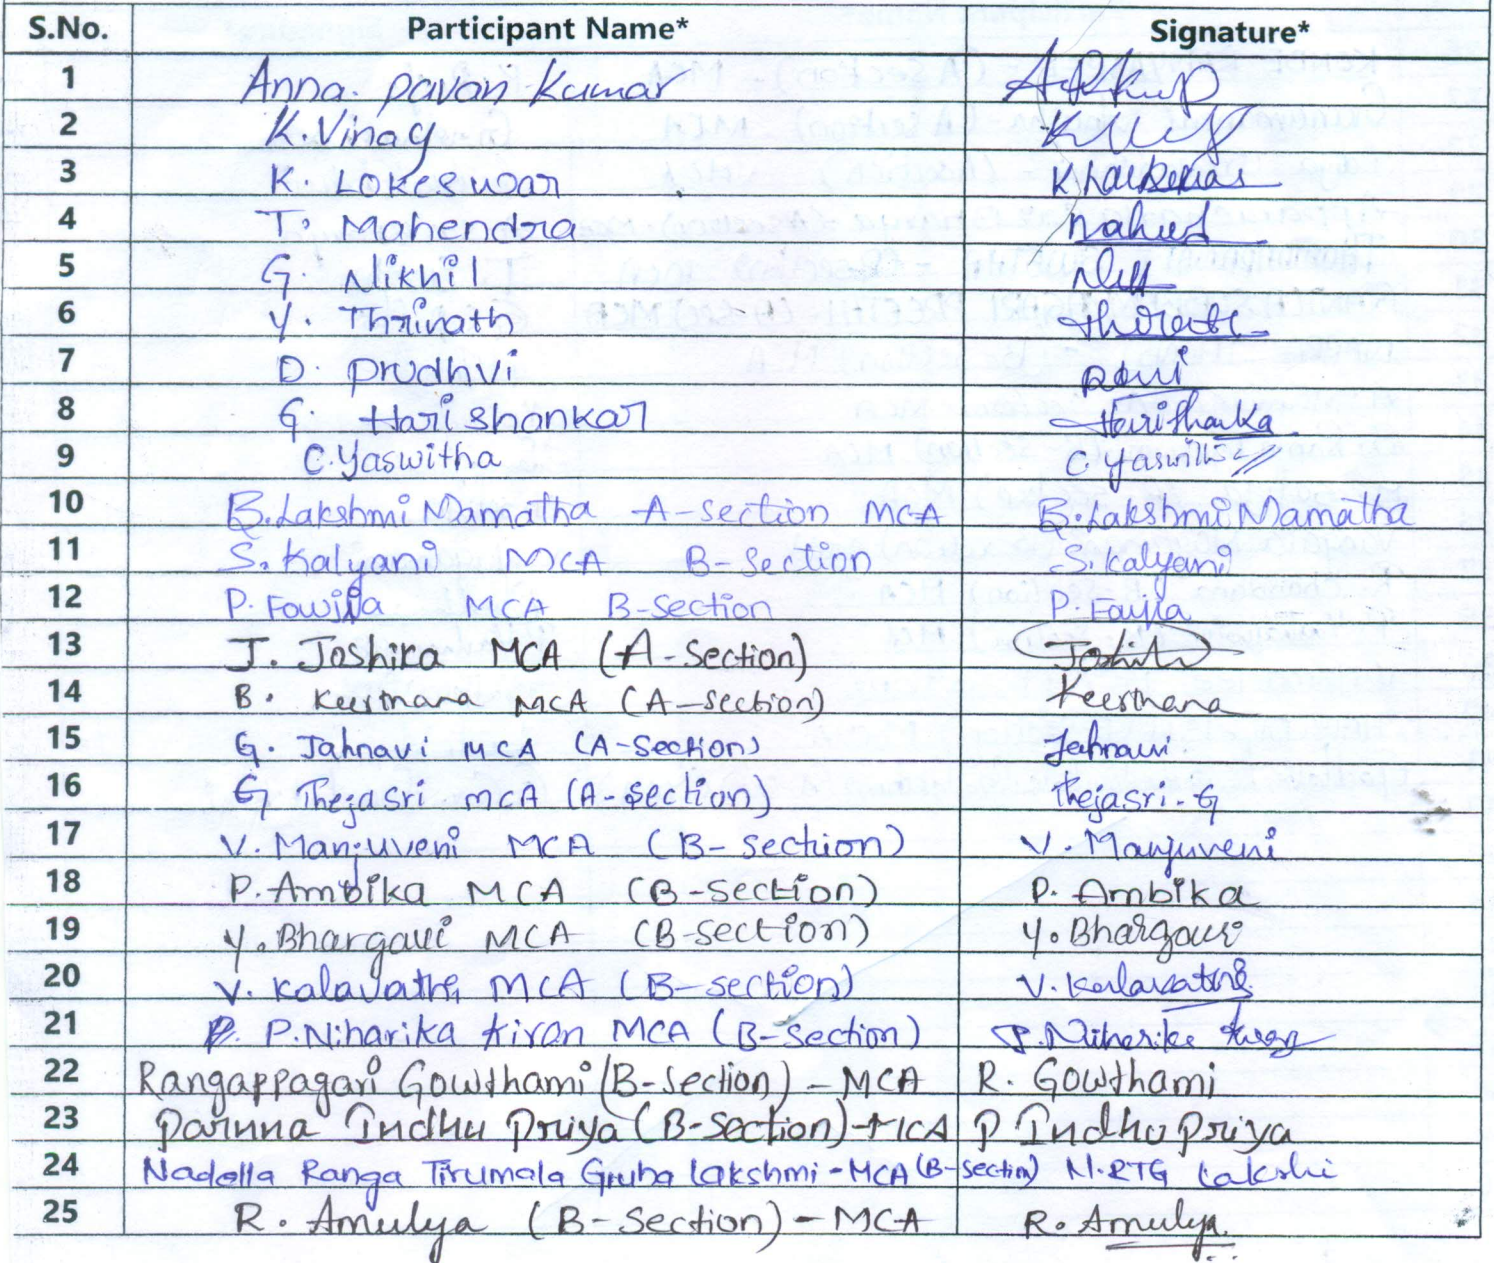 S.No. Participant Name* Signature*
1 Anna. pavan kumar
2 K.Vinay
3 K. Lokeswar
4 T. Mahendra
5 G. Nikhil
6 Y. Thrinath
7 D. prudhvi
8 G. Hari shankar Harishanka
9 C.Yaswitha C.Yaswitha
10 B.Lakshmi Mamatha A-section MCA B.Lakshmi Mamatha
11 S. Kalyani MCA B-Section S.Kalyani
12 P. Fowjia MCA B-Section P. Fowjia
13 J. Joshika MCA (A-Section)
14 B. Keerthana MCA (A-section) Keerthana
15 G. Jahnavi MCA (A-Section) Jahnavi
16 G Thejasri MCA (A-section) Thejasri-G
17 V. Manjuveni MCA (B-section) V. Manjuveni
18 P. Ambika MCA (B-section) P. Ambika
19 Y. Bhargavi MCA (B-section) Y. Bhargavi
20 V. Kalavathi MCA (B-section) V. Kalavathi
21 P. P.Niharika Kiran MCA (B-Section) P.Niharika Kiran
22 Rangappagari Gowthami (B-Section) - MCA R. Gowthami
23 Parnna Indhu Priya (B-Section) - MCA P Indhu priya
24 Nadella Ranga Tirumala Gruha Lakshmi - MCA (B-Section) N.RTG Lakshi
25 R. Amulya (B-Section) - MCA R. Amulya.